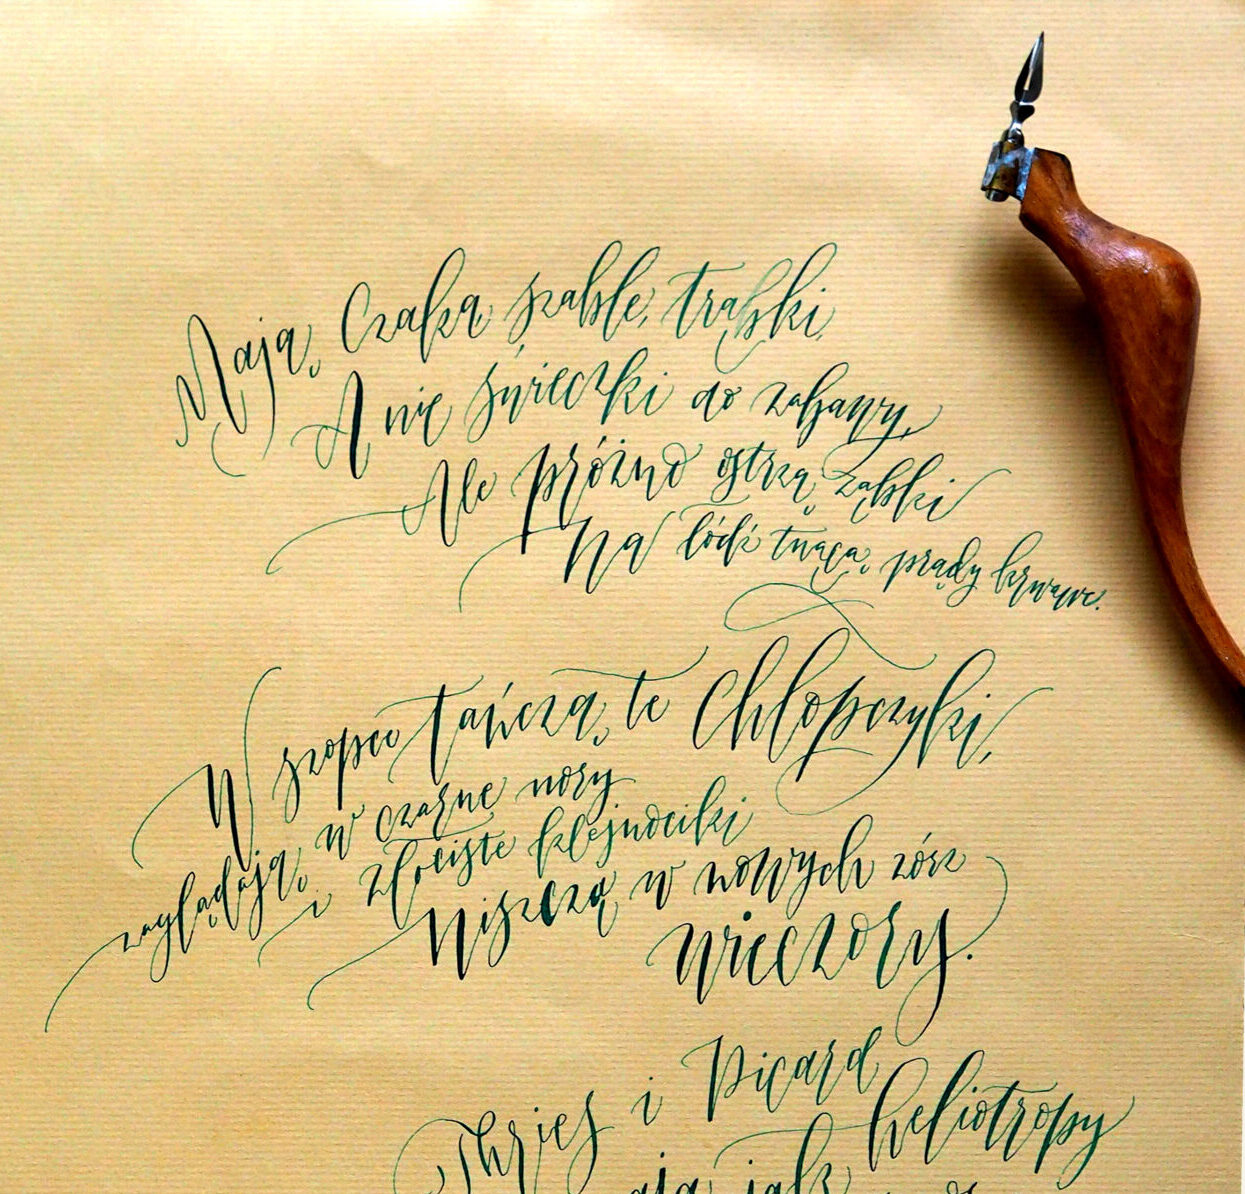 Mają Czaka, szable, trąbki,
A nie świeczki do zabawy,
Ale próżno ostrzą ząbki
Na łódź tnącą prądy krwawe.
W szopce tańczą te Chłopczyki,
zaglądają w czarne nory
i złociste klejnociki
Niszczą w nowych zórz
wieczory.
i Picard
heliotropy
jak